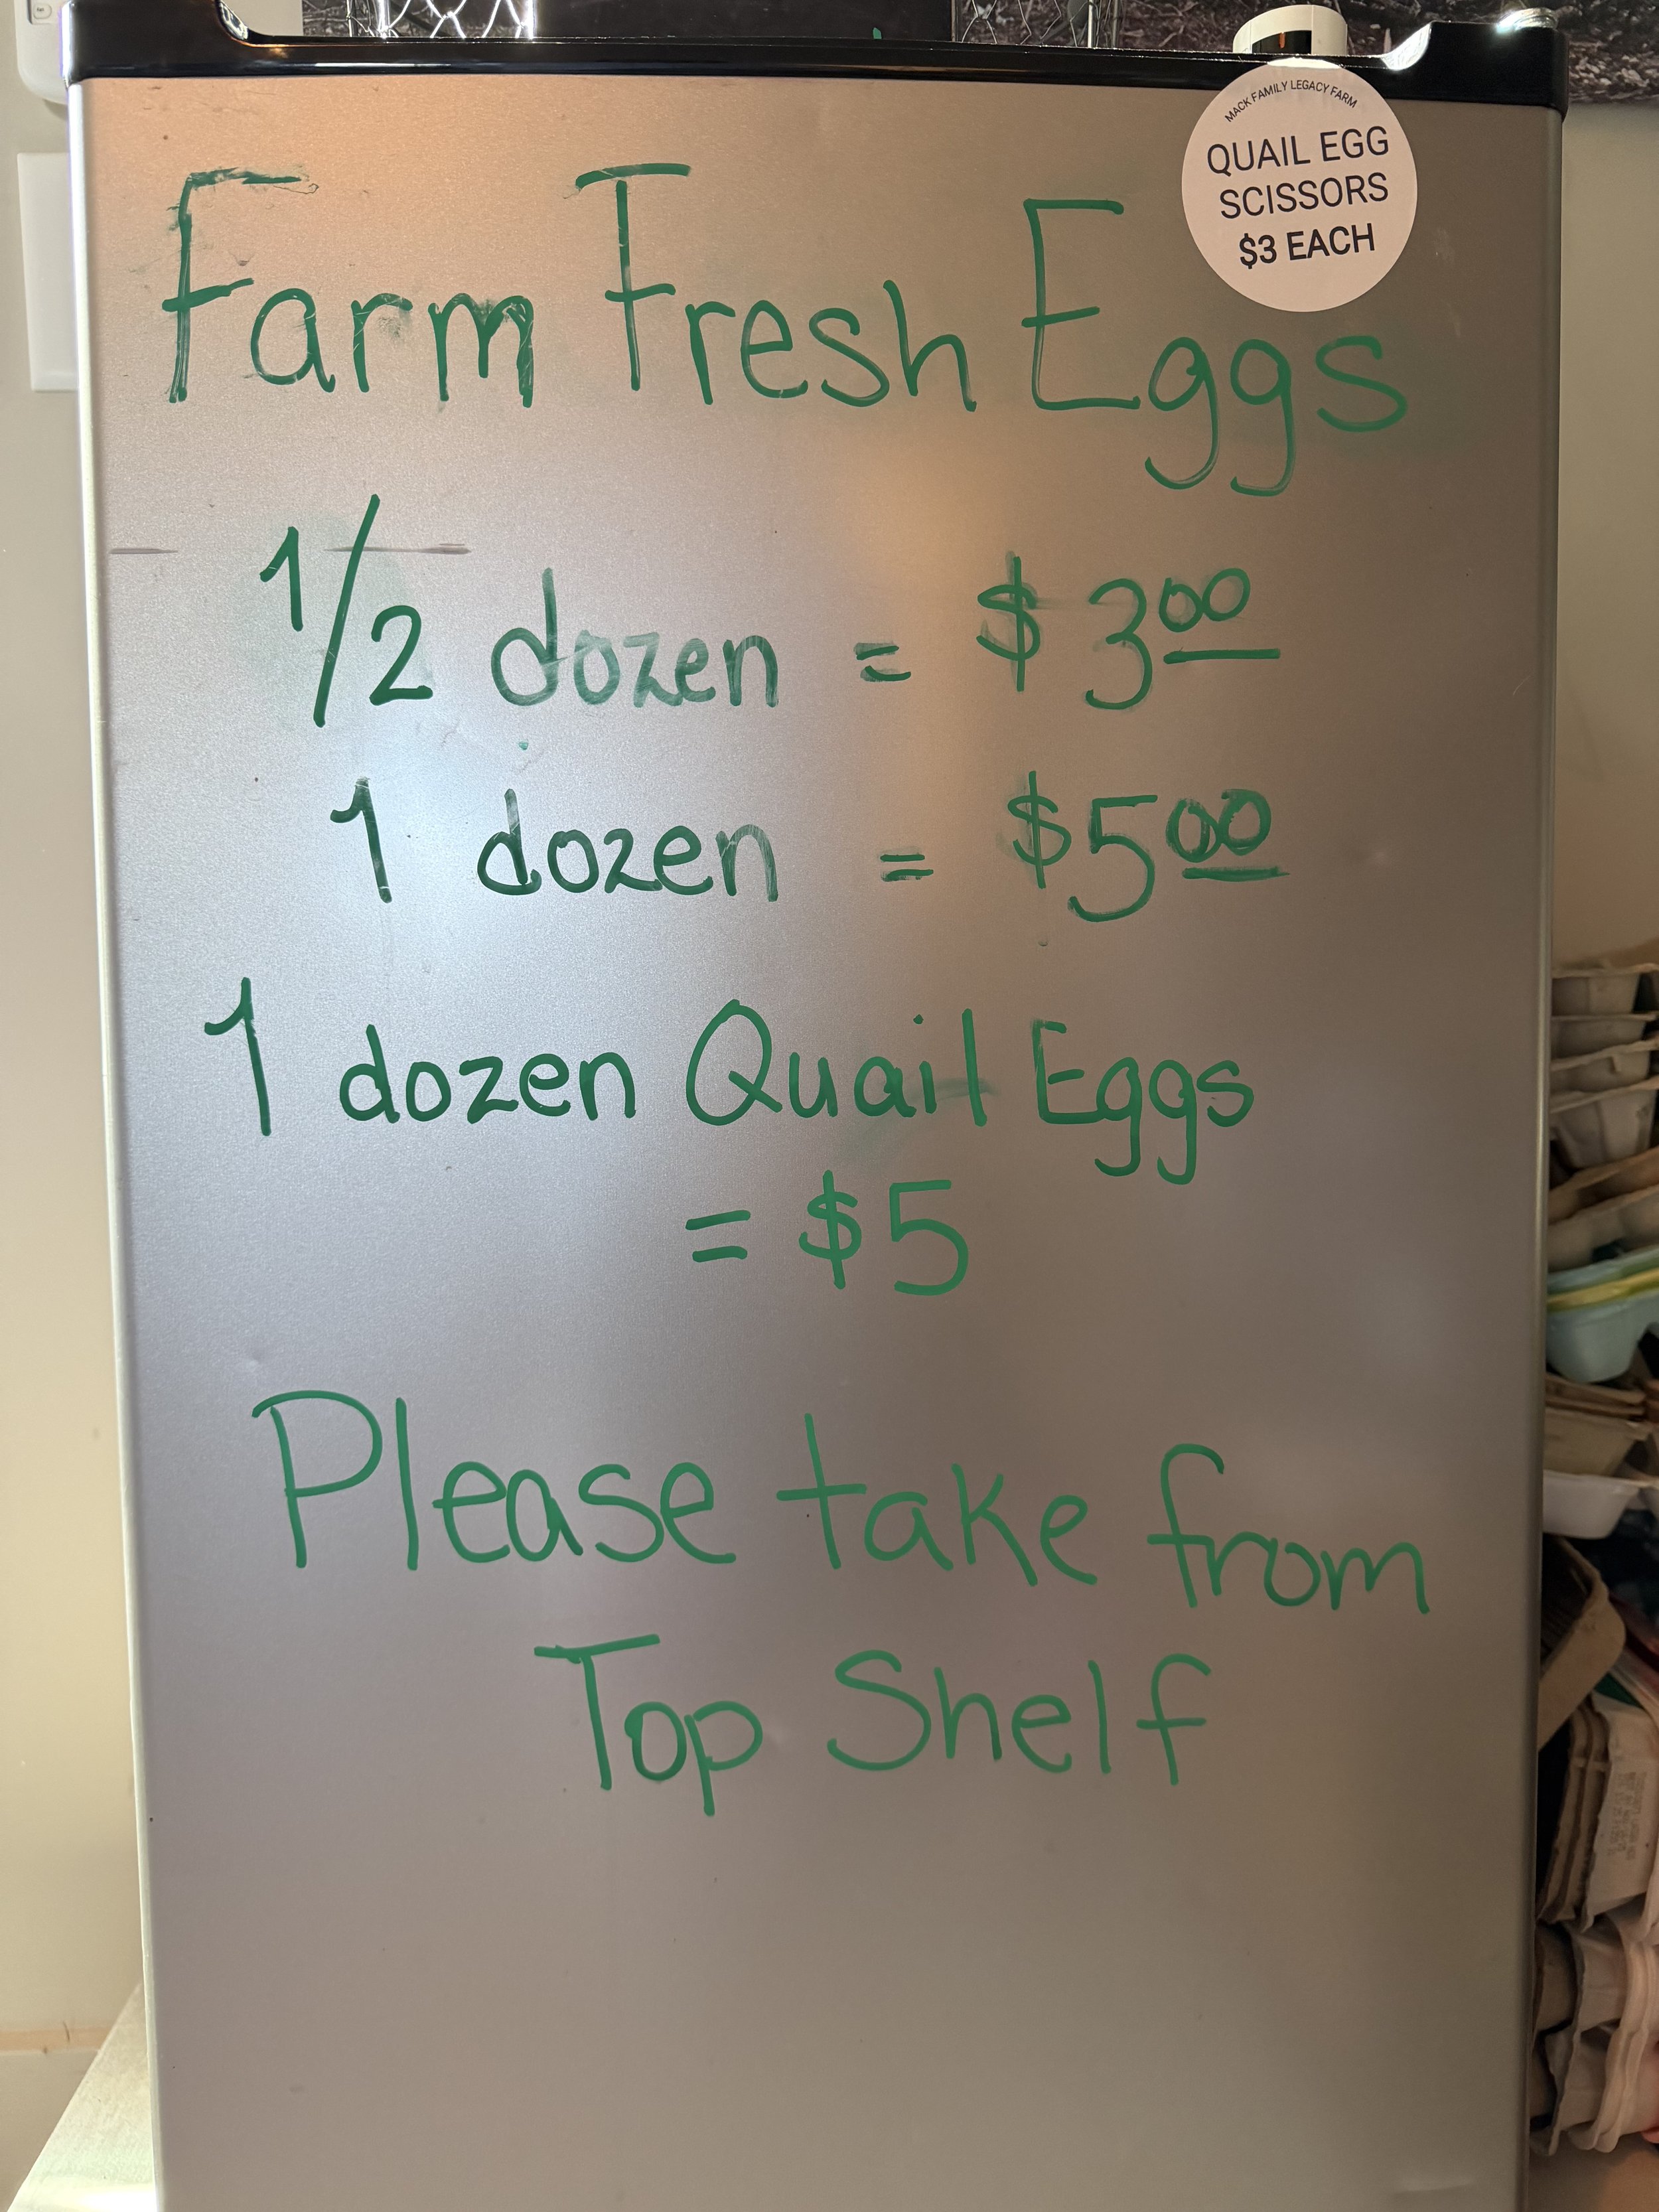 MACK FAMILY LEGACY FARM
QUAIL EGG
SCISSORS
$3 EACH
Farm Fresh Eggs
1/2 dozen = $300
1 dozen = $500
1 dozen Quail Eggs
= $5
Please take from
Top Shelf